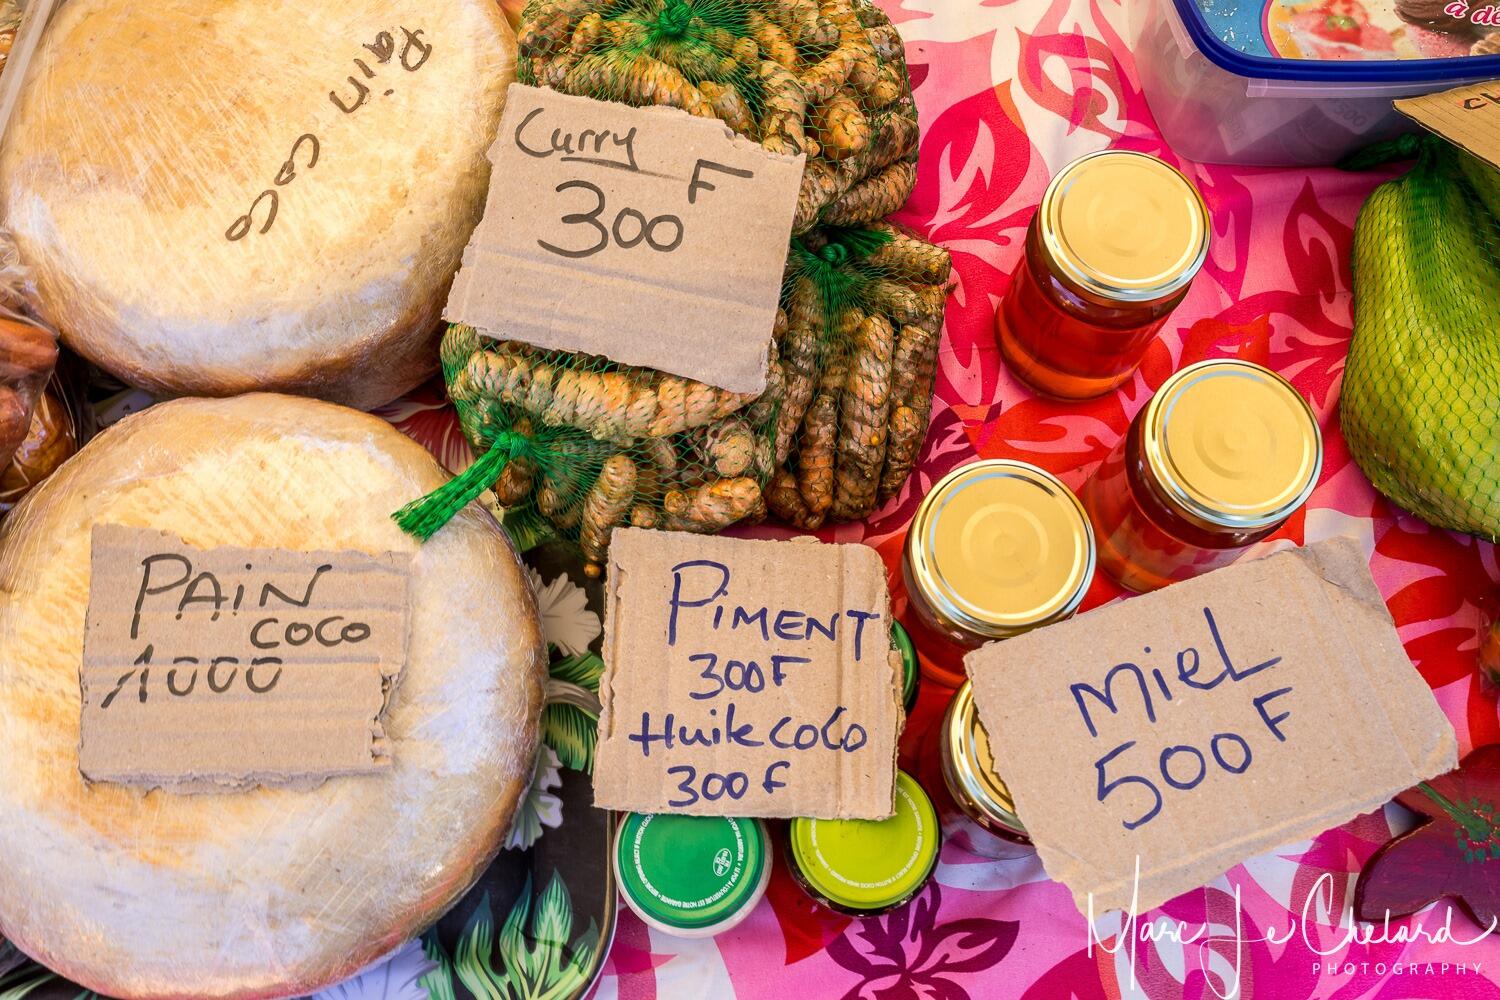 Pain coco
Curry
300 F
PAiN
COCO
1000
PiMENT
300F
Huile coco
300 F
Miel
500 F
à de
Marc Le Chelard
PHOTOGRAPHY